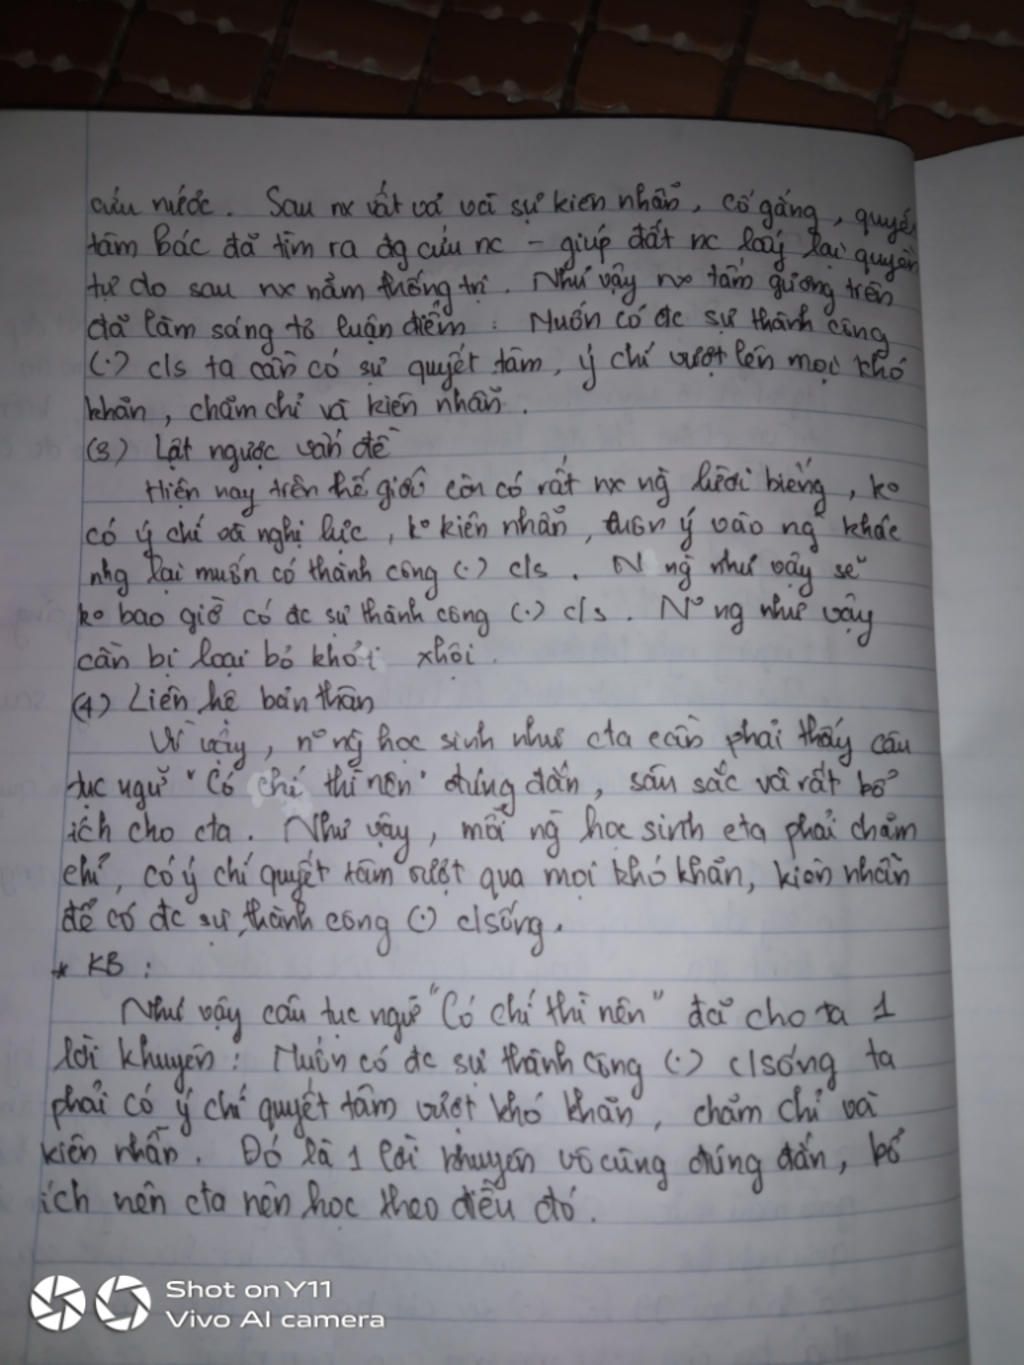 cứu nước. Sau nx vất vả với sự kiên nhẫn, cố gắng, quyết
tâm Bác đã tìm ra đg cứu nc - giúp đất nc lấy lại quyền
tự do sau nx năm thống trị. Như vậy nx tấm gương trên
đã làm sáng tỏ luận điểm: Muốn có đc sự thành công
(.) c/s ta cần có sự quyết tâm, ý chí vượt lên mọi khó
khăn, chăm chỉ và kiên nhẫn.
(3) Lật ngược vấn đề
Hiện nay trên thế giới còn có rất nx ng lười biếng, ko
có ý chí và nghị lực, ko kiên nhẫn, ý vào ng khác
nhg lại muốn có thành công (.) c/s. N ng như vậy sẽ
ko bao giờ có đc sự thành công (.) c/s. No ng như vậy
cần bị loại bỏ khỏi xhội.
(4) Liên hệ bản thân
Vì vậy, no ng học sinh như cta cần phải thấy câu
tục ngữ "Có chí thì nên" đúng đắn, sâu sắc và rất bổ
ích cho cta. Như vậy, mỗi ng học sinh cta phải chăm
chỉ, có ý chí quyết tâm vượt qua mọi khó khăn, kiên nhẫn
để có đc sự thành công (.) c/sống.
* KB:
Như vậy câu tục ngữ "Có chí thì nên" đã cho ta 1
lời khuyên: Muốn có đc sự thành công (.) c/sống ta
phải có ý chí quyết tâm vượt khó khăn, chăm chỉ và
kiên nhẫn. Đó là 1 lời khuyên vô cùng đúng đắn, bổ
ích nên cta nên học theo điều đó.
Shot on Y11
Vivo AI camera